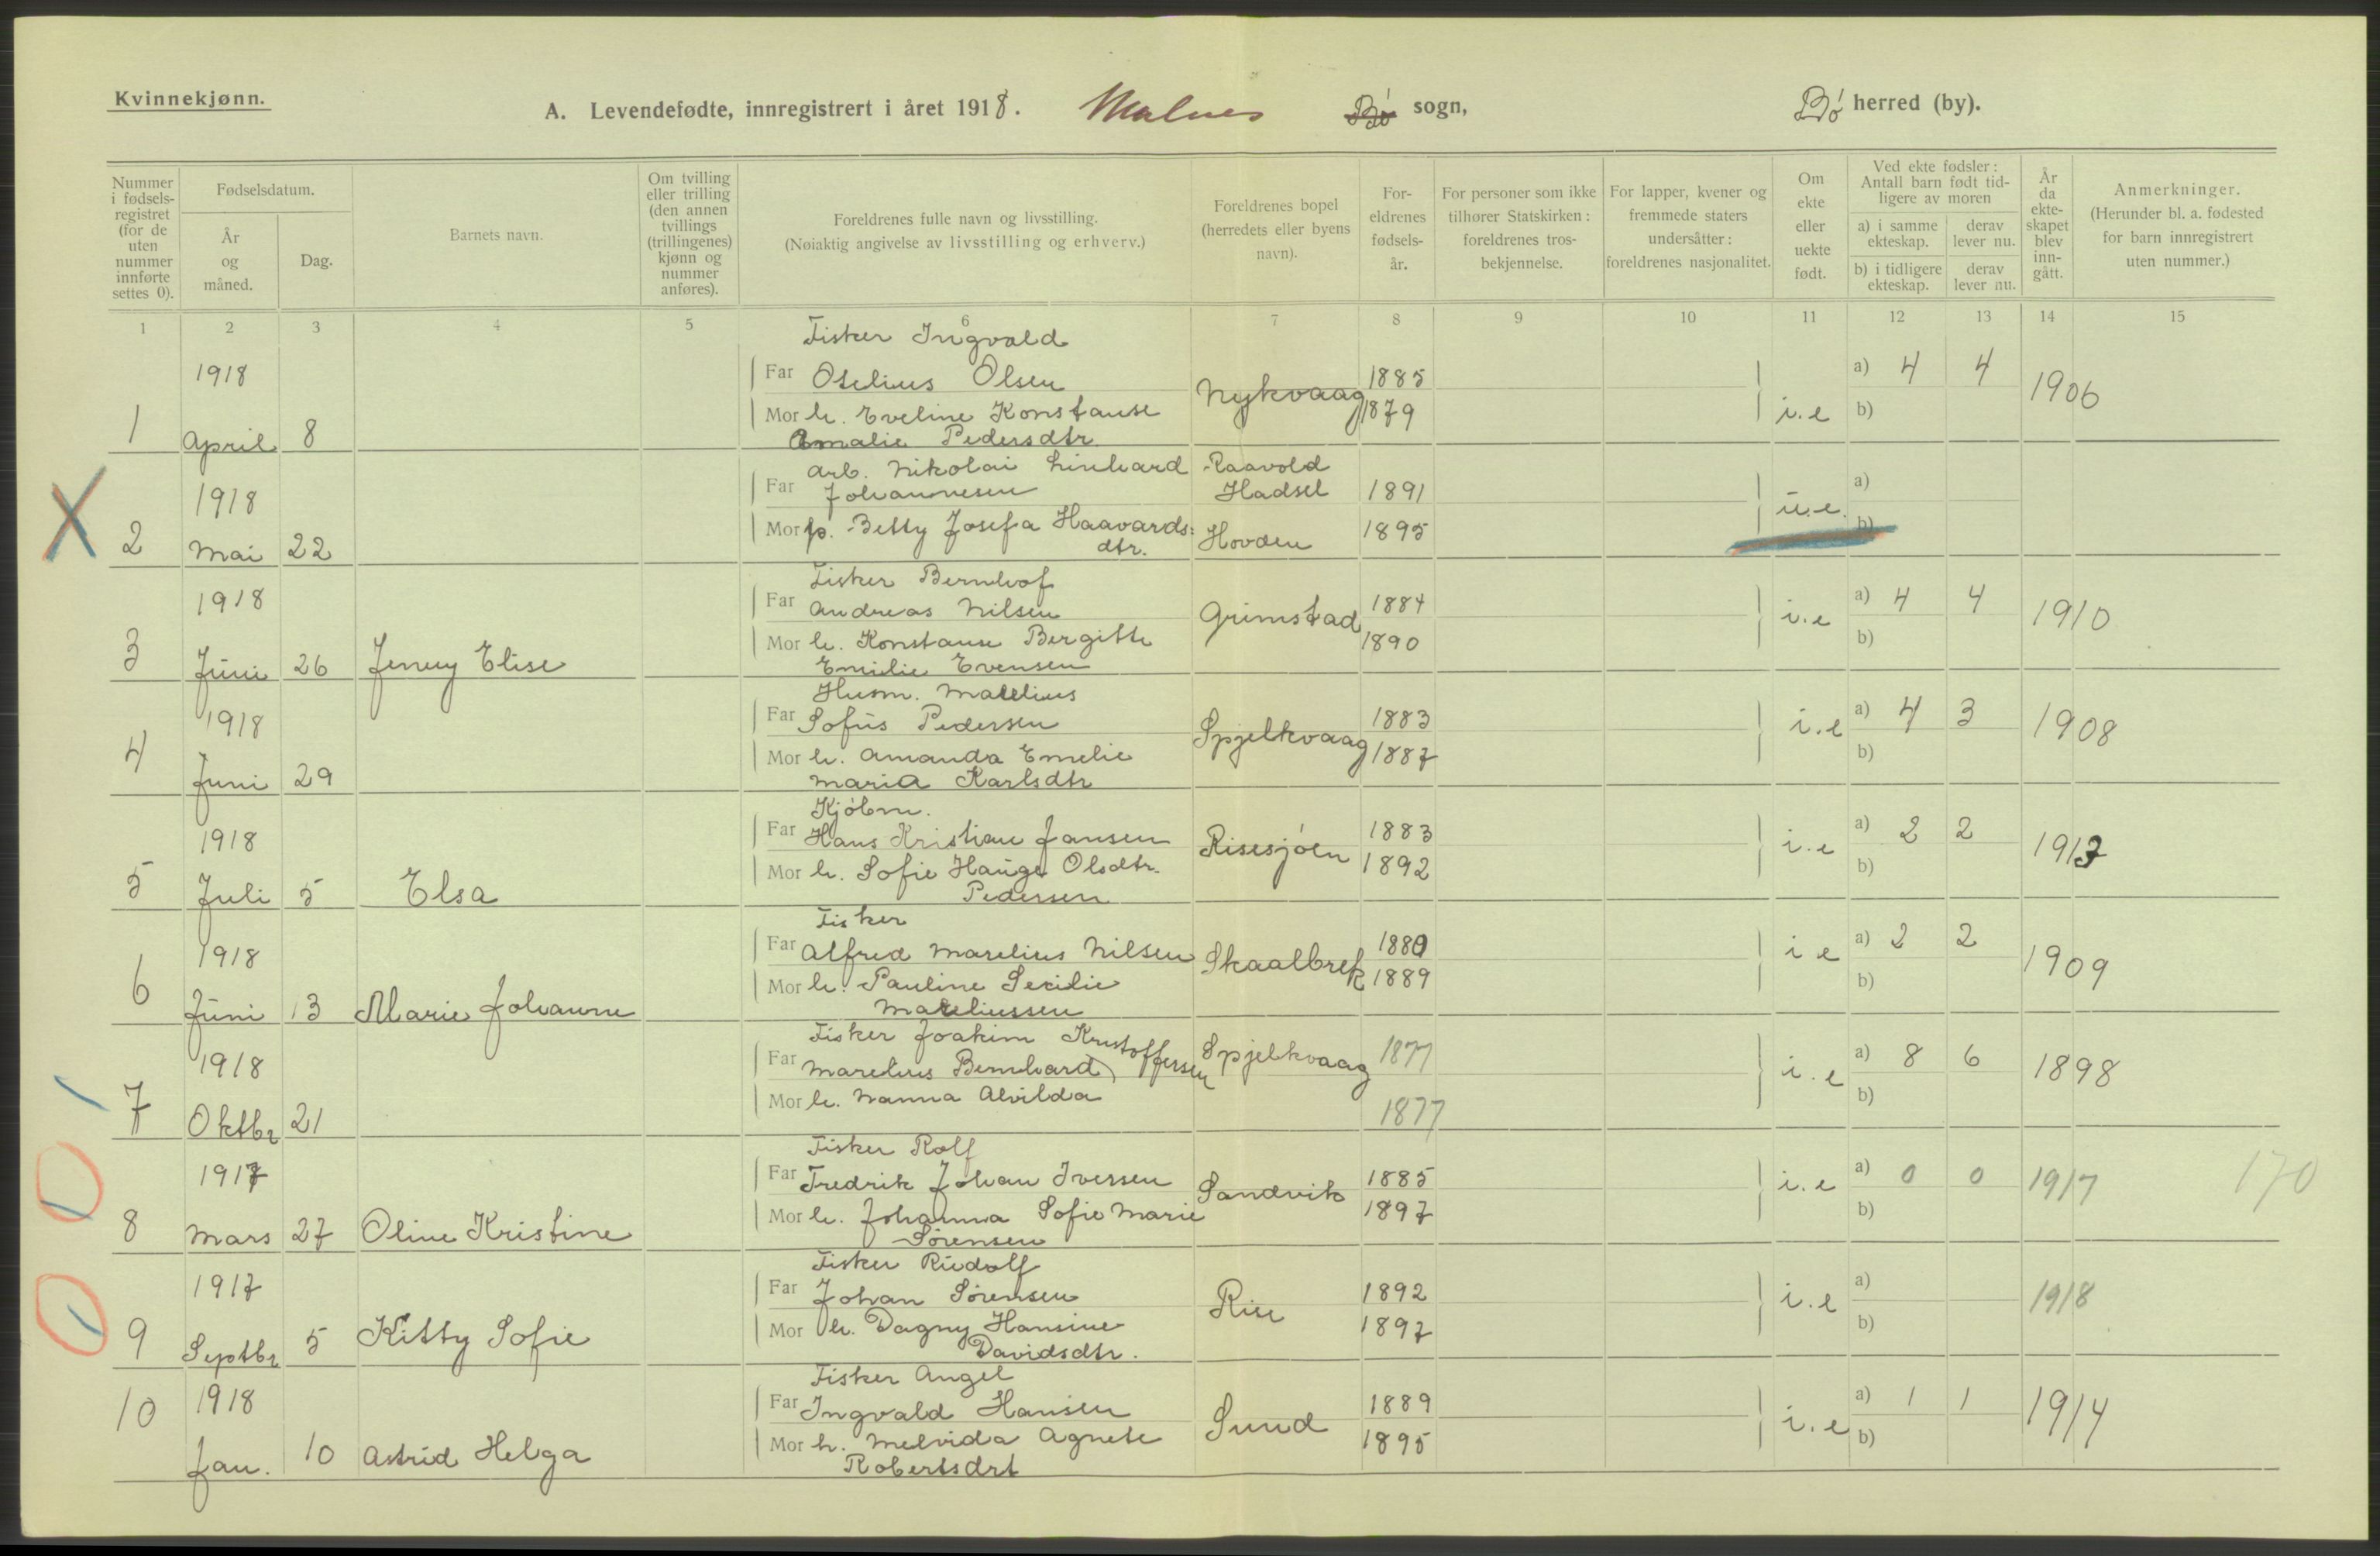 Kvinnekjønn.
A. Levendefødte, innregistrert i året 1918. Malnes Bø sogn, Bø herred (by).
Nummer i fødsels-registret (for de uten nummer innførte settes 0).
Fødselsdatum.
År og måned.
Dag.
Barnets navn.
Om tvilling eller trilling (den annen tvillings (trillingenes) kjønn og nummer anføres).
Foreldrenes fulle navn og livsstilling.
(Nøiaktig angivelse av livsstilling og erhverv.)
Foreldrenes bopel (herredets eller byens navn).
For-eldrenes fødsels-år.
For personer som ikke tilhører Statskirken: foreldrenes tros-bekjennelse.
For lapper, kvener og fremmede staters undersåtter: foreldrenes nasjonalitet.
Om ekte eller uekte født.
Ved ekte fødsler: Antall barn født tid-ligere av moren
a) i samme ekteskap. derav lever nu.
b) i tidligere ekteskap. derav lever nu.
År da ekte-skapet blev inn-gått.
Anmerkninger.
(Herunder bl. a. fødested for barn innregistrert uten nummer.)
1 2 3 4 5 6 7 8 9 10 11 12 13 14 15
Fisker Ingvald
1918 Far Otelius Olsen Nykvaag 1885 a) 4 4 1906
Mor h. Eveline Konstanse 1879 i.e b)
1 April 8 Amalie Pedersdtr
Arb. Nikolai Linhard Raavold
1918 Far Johannesen Hadsel 1891 u.e. a)
Mor p. Betty Josefa Haavards: Hovden 1895 b)
2 Mai 22 dtr.
Fisker Berndhof
1918 Far Andreas Nilsen Grimstad 1884 i.e a) 4 4 1910
Mor h. Konstanse Bergitte 1890 b)
3 Juni 26 Jenny Elise Emilie Evensen
Husm. Marelius
1918 Far Sofus Pedersen Spjelkvaag 1883 i.e a) 4 3 1908
Mor h. Amanda Emelie 1887 b)
4 Juni 29 Maria Karlsdtr
Kjøbm.
1918 Far Hans Kristian Jansen Risesjøen 1883 i.e a) 2 2 1913
Mor h. Sofie Hauge Olsdtr. 1892 b)
5 Juli 5 Elsa Pedersen
Fisker
1918 Far Alfred Marelius Nilsen Skaalbrek 1880 i e a) 2 2 1909
Mor h. Pauline Secilie 1889 b)
6 Juni 13 Marie Johanne Mareliussen
Fisker Joakim Kristoffersen
1918 Far Marelius Bernhard Spjelkvaag 1877 i.e a) 8 6 1898
Mor h. Nanna Alvilda 1877 b)
7 Oktbr 21
Fisker Rolf
1917 Far Fredrik Johan Iversen Sandvik 1885 i.e a) 0 0 1917 170
Mor h. Johanna Sofie Marie 1897 b)
8 Mars 27 Oline Kristine Sørensen
Fisker Rudolf
1917 Far Johan Sørensen Rise 1892 i.e a) 1918
Mor h. Dagny Hansine 1897 b)
9 Septbr 5 Kitty Sofie Davidsdtr.
Fisker Angel
10 1918 Far Ingvald Hansen Sund 1889 i.e a) 1 1 1914
Mor h. Melvida Agnete 1895 b)
Jan. 10 Astrid Helga Robertsdrt